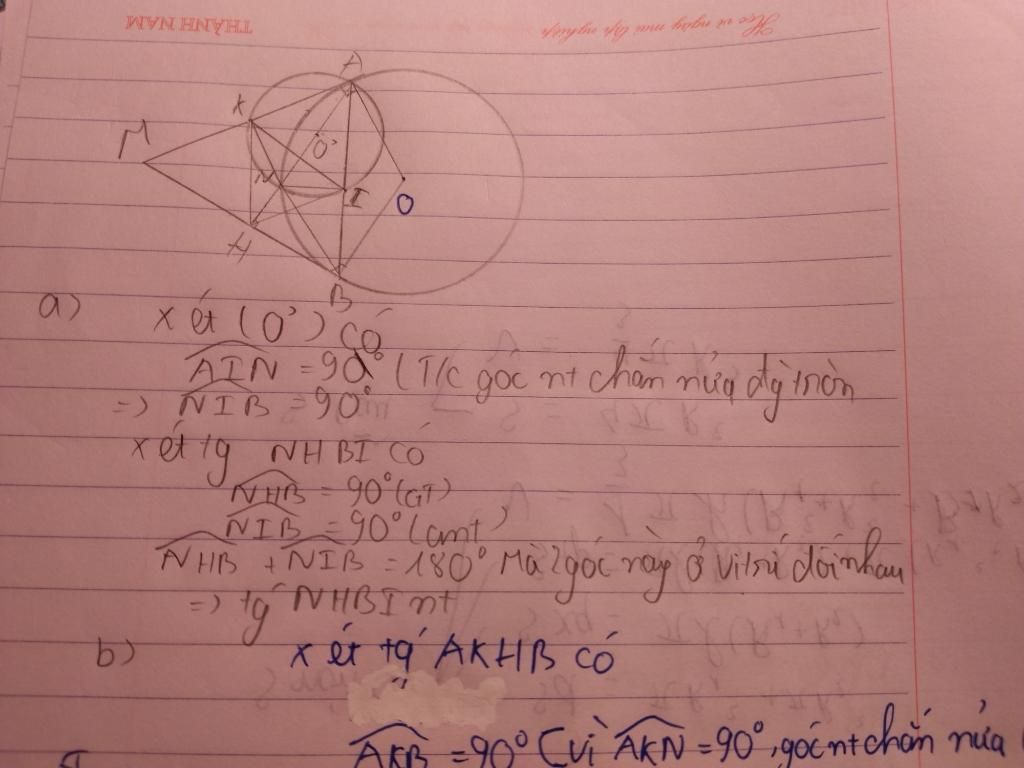 THÀNH NAM
Học vì ngày mai lập nghiệp
A
K
M
O'
N
I
O
H
B
a) xét (O') có
AIN = 90° (T/c góc nt chắn nửa đg tròn
=> NIB = 90°
xét tg NHBI có
NHB = 90° (GT)
NIB = 90° (cmt)
NHB + NIB = 180° Mà 2 góc này ở vị trí đối nhau
=> tg NHBI nt
b) xét tg AKHB có
AKB = 90° (vì AKN = 90°, góc nt chắn nửa